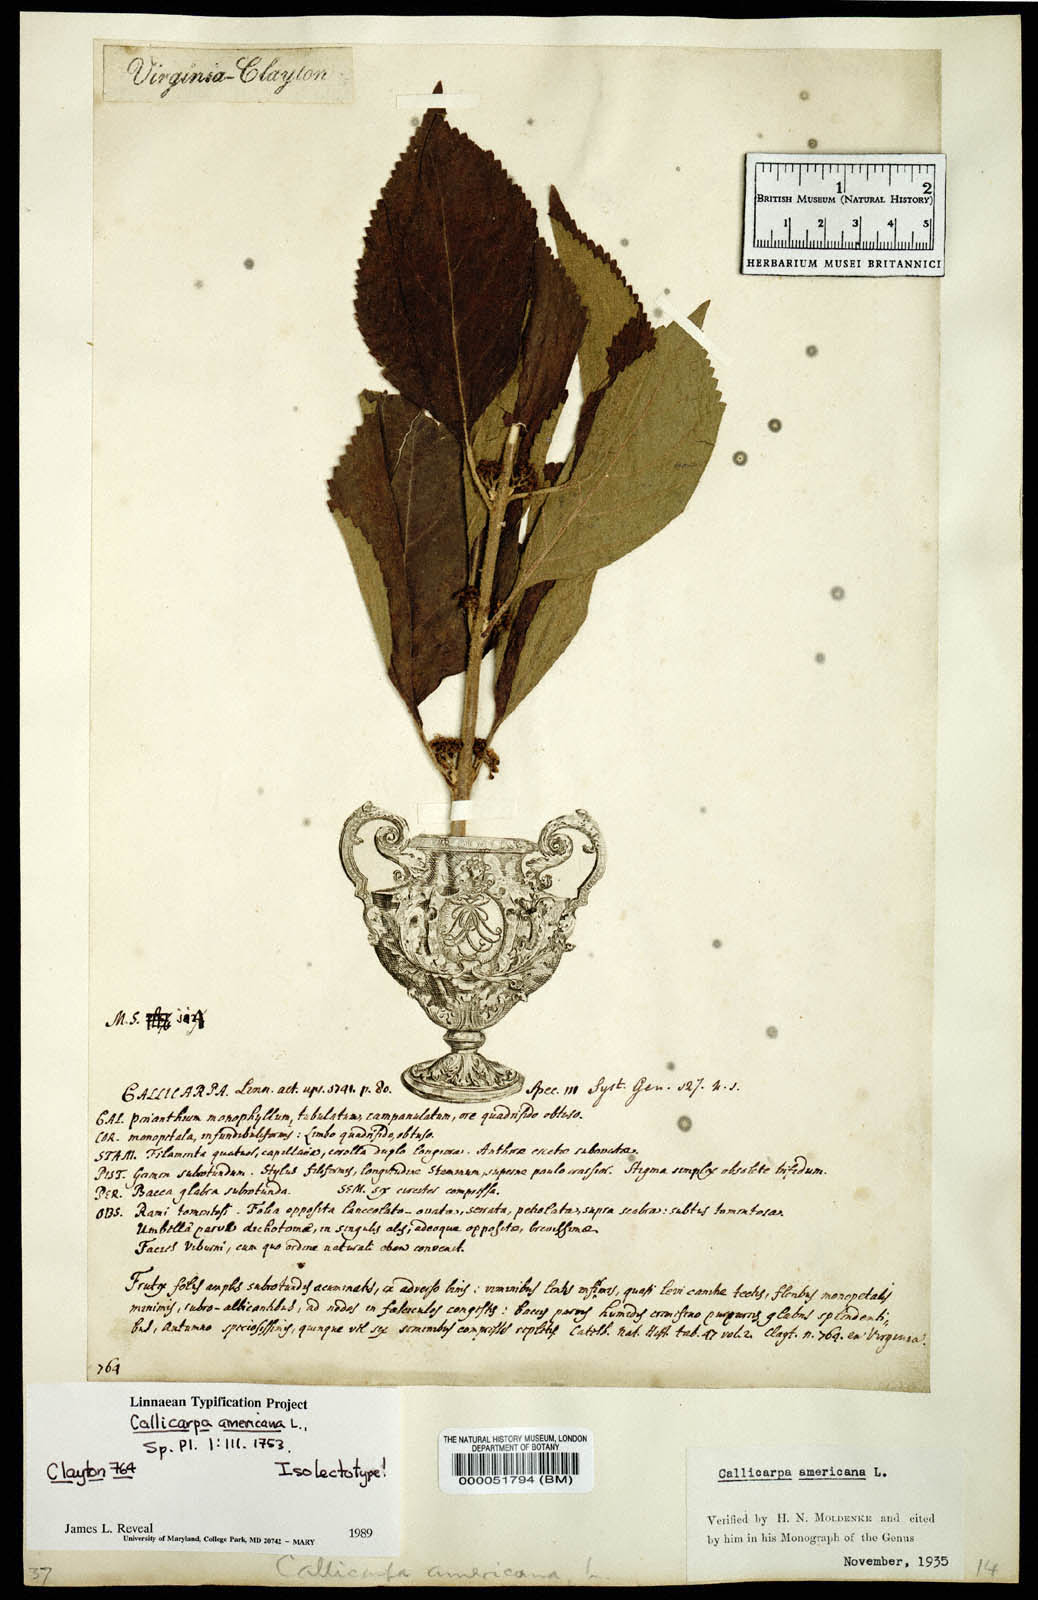 Virginia-Clayton
1 2
BRITISH MUSEUM (NATURAL HISTORY)
1 2 3 4 5
HERBARIUM MUSEI BRITANNICI
M.S.
CALLICARPA. Linn. act. ups. 1741. p. 80. Spec. 111 Syst. Gen. 127. n. 1.
CAL. perianthium monophyllum, tubulatum, campanulatum, ore quadrifido obtuso.
COR. monopetala, infundibuliformis: Limbo quadrifido, obtuso.
STAM. Filamenta quatuor, capillaria, corolla duplo longiora. Antheræ erectæ subovatæ.
PIST. Germen subrotundum. Stylus filiformis, longitudine Staminum, superne paulo crassior. Stigma simplex obsolete bifidum.
PER. Bacca glabra subrotunda. SEM. sex erectis compressa.
OBS. Rami tomentosi. Folia opposita lanceolato-ovata, serrata, petiolata, supra scabra: subtus tomentosa.
Umbellæ parvæ dichotomæ, in singulis alis, adeoque oppositæ, brevissimæ.
Facies Viburni, cum quo ordine naturali convenit.
Frutex foliis amplis subrotundis acuminatis, ex adverso binis: viminibus lentis infirmis, quasi levi canitie tectis, floribus monopetalis
minimis, subro-albicantibus, ad nodos in fasciculos congestis: baccis parvis humidis purpureis glabris splendenti=
bus, Autumno speciosissimis, quinque vel sex seminibus compressis repletis Catesb. Nat. Hist. tab. 47 vol. 2. Clayt. n. 764. en Virginia.
764
Linnaean Typification Project
Callicarpa americana L.,
Sp. Pl. 1:111. 1753.
Clayton 764 Isolectotype!
James L. Reveal 1989
University of Maryland, College Park, MD 20742 – MARY
THE NATURAL HISTORY MUSEUM, LONDON
DEPARTMENT OF BOTANY
000051794 (BM)
Callicarpa americana L.
Verified by H. N. MOLDENKE and cited
by him in his Monograph of the Genus
November, 1935
37 Callicarpa americana, L. 14